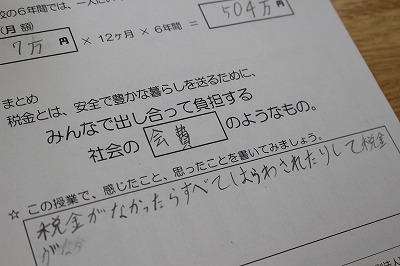 校の6年間では、一人に
(月 額)
7万 円 × 12ヶ月 × 6年間 = 504万 円
まとめ
税金とは、安全で豊かな暮らしを送るために、
みんなで出し合って負担する
社会の 会費 のようなもの。
☆ この授業で、感じたこと、思ったことを書いてみましょう。
税金がなかったらすべてはらわされたりして税金
が